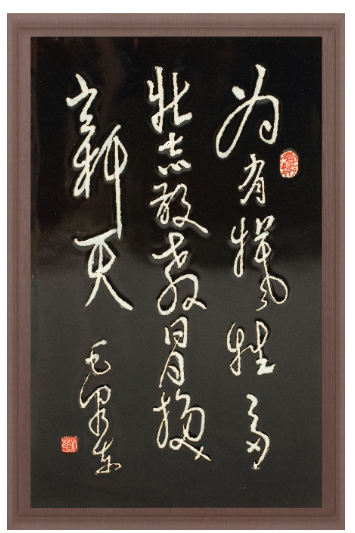 为有牺牲多
壮志敢教日月换
新天
毛泽东